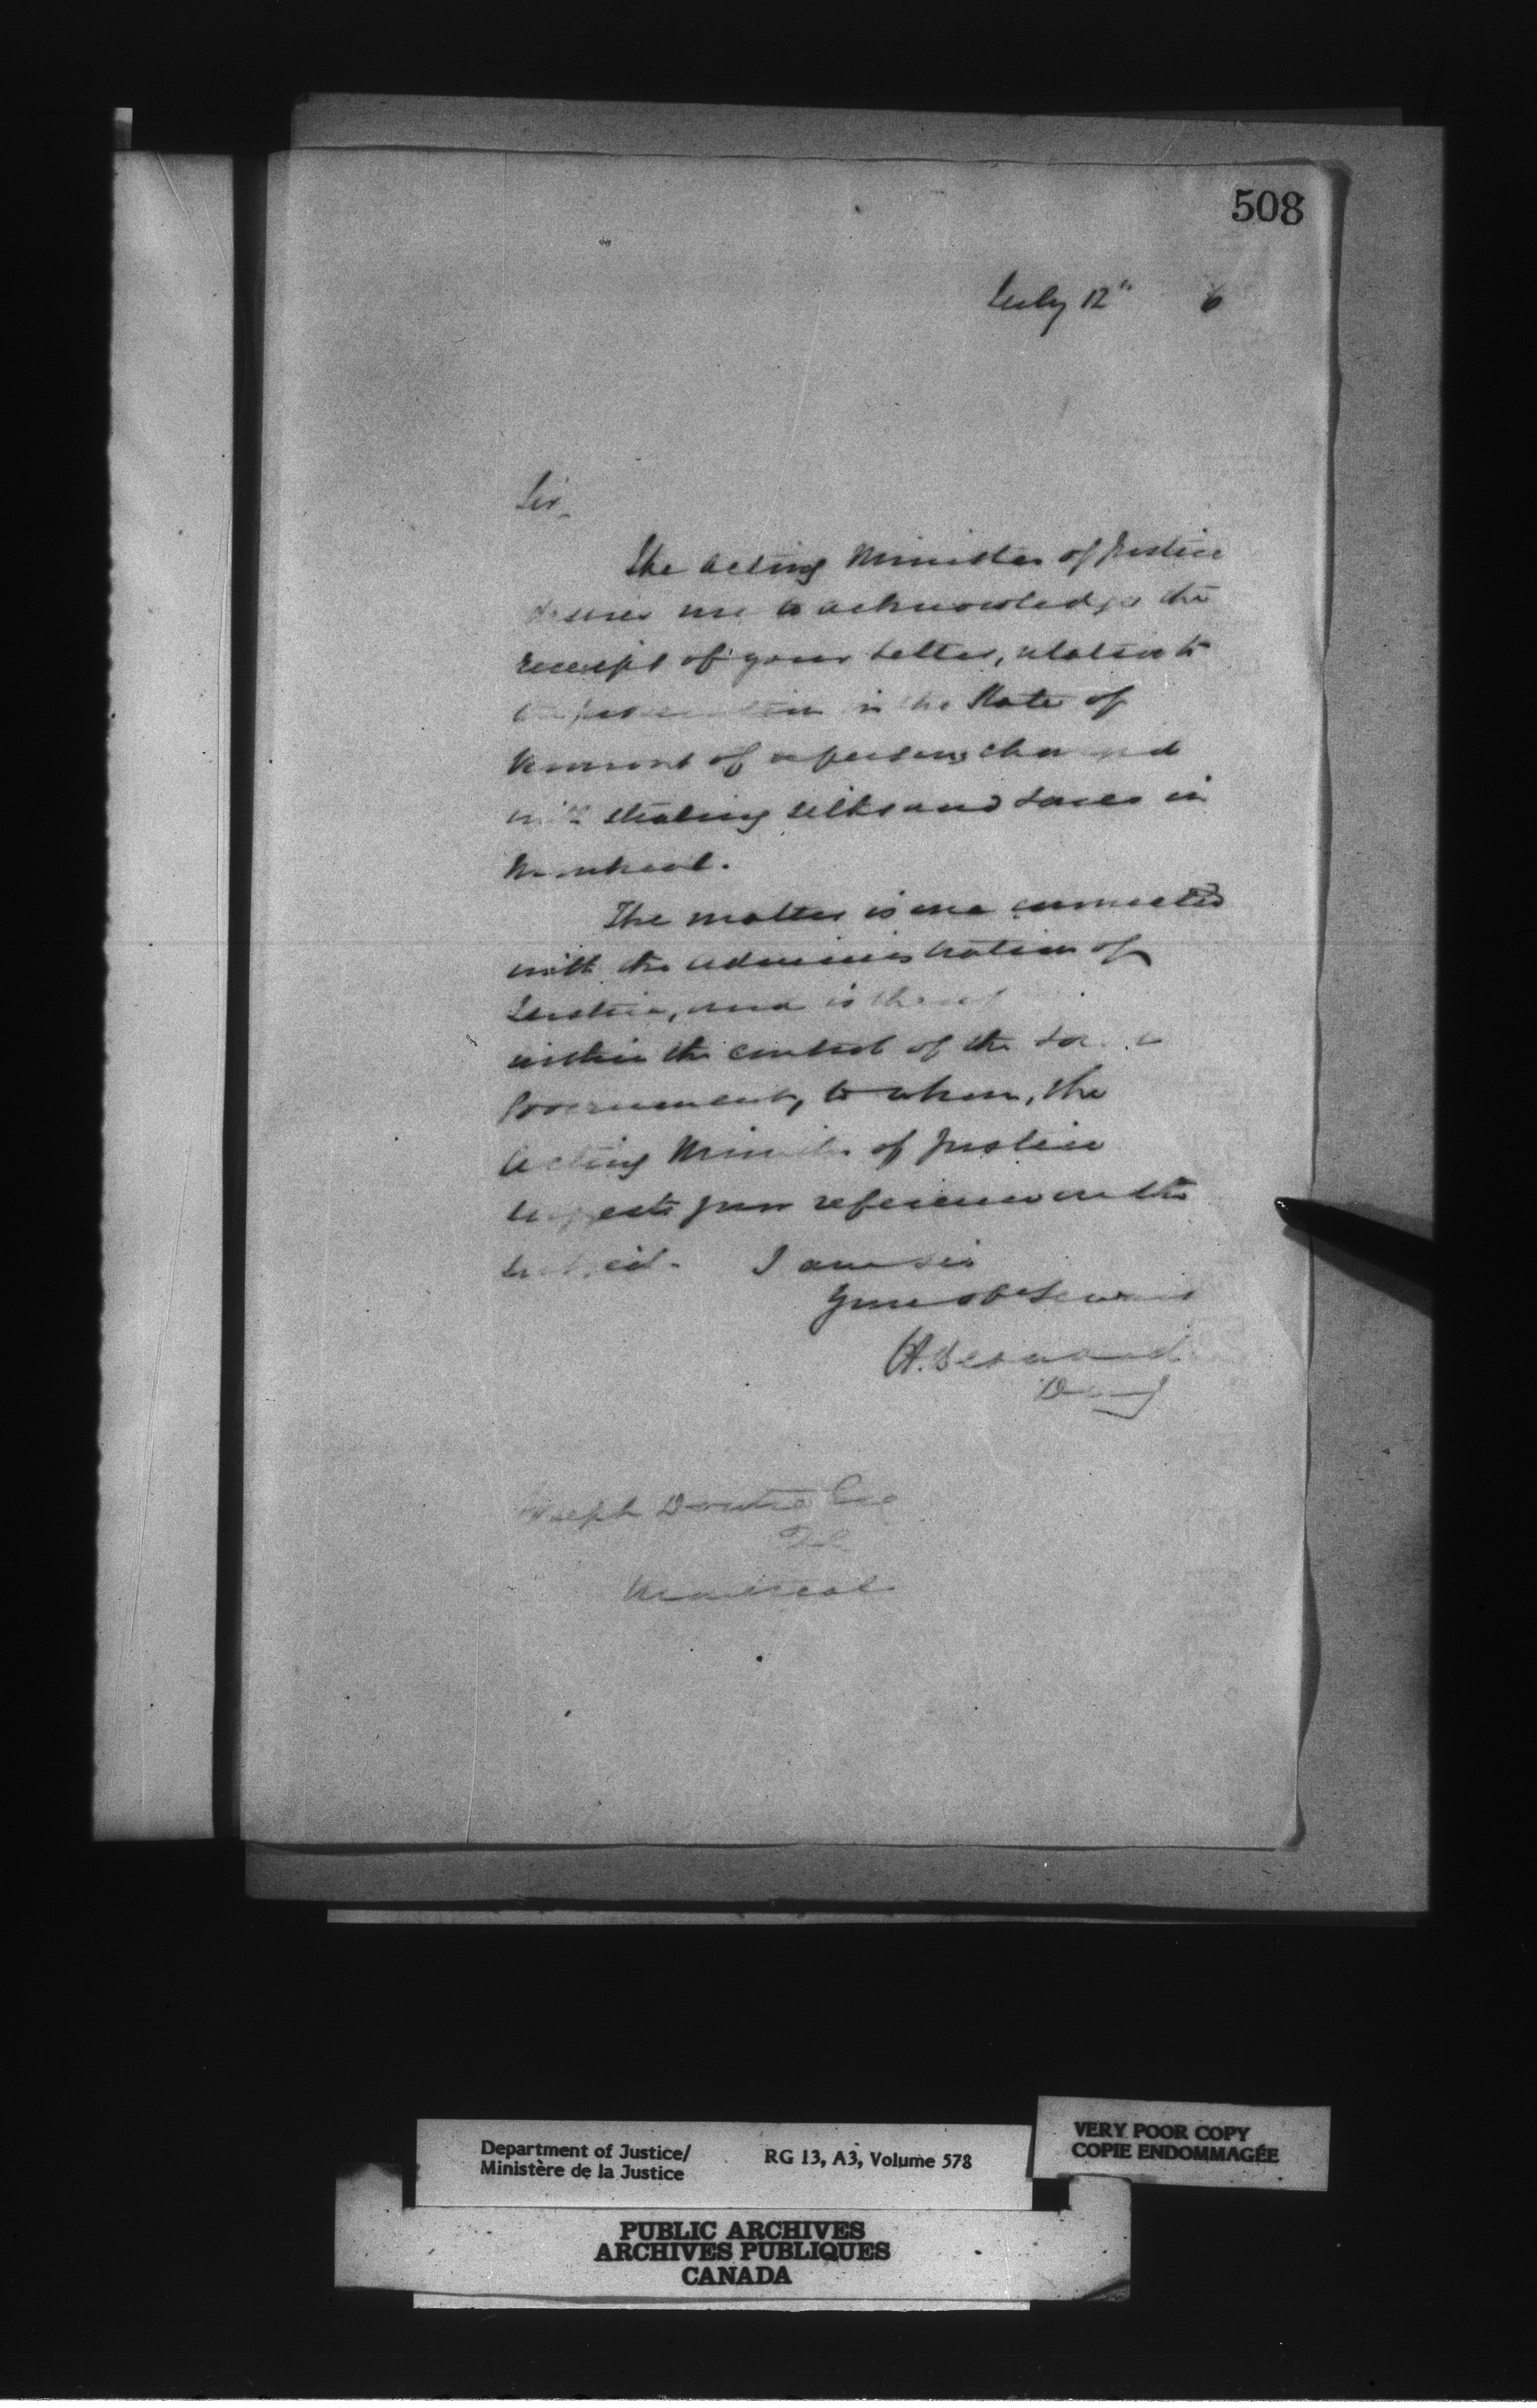 508
July 12" 6
Sir,
The Acting Minister of Justice
desires me to acknowledge the
receipt of your letter, relative to
the prosecution in the State of
Vermont of a person charged
with stealing silks and laces in
Montreal.
The matter is one connected
with the administration of
Justice, and is
within the control of the
Government, to whom, the
Acting Minister of Justice
suggests your reference on the
subject. I am Sir
Your obt Servant
H. Bernard
Joseph Doutre Esq
Q.C.
Montreal
Department of Justice/
Ministère de la Justice
RG 13, A3, Volume 578
VERY POOR COPY
COPIE ENDOMMAGÉE
PUBLIC ARCHIVES
ARCHIVES PUBLIQUES
CANADA